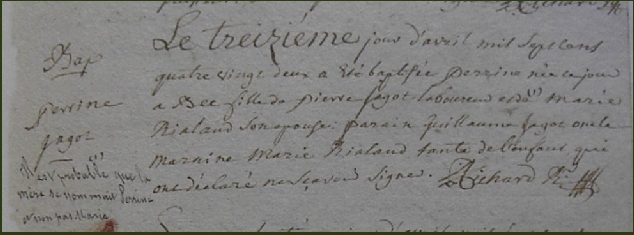 Richard
Bap
perrine
gagot
Il est probable que la
mère se nommait Perrine
et non pas Marie
Le treizième jour d'avril mil Sept cens
quatre vingt deux a été baptisée perrine née ce jour
a Bee fille de pierre gagot laboureur et d^lle Marie
Rialand Son epouse: parain guillaume gagot oncle
maraine Marie Rialand tante de l'enfant qui
ont déclaré ne sçavoir Signer. Richard